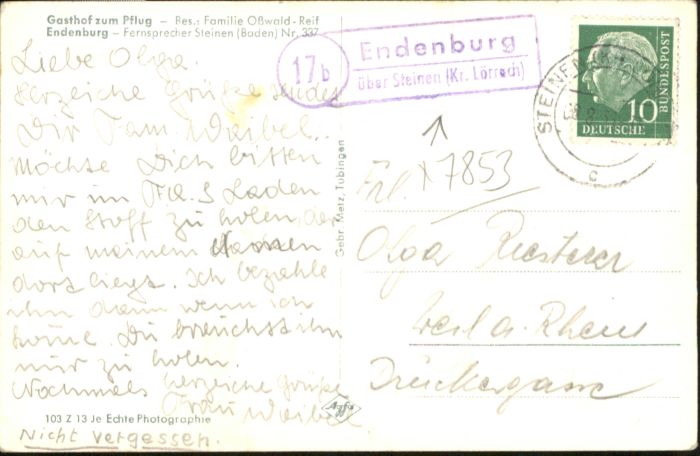 Gasthof zum Pflug – Bes.: Familie Oßwald-Reif
Endenburg – Fernsprecher Steinen (Baden) Nr. 337
Liebe Olga.
Herzeiche Grüße sendet
Dir Fam Waibel.
Möchte Dich bitten
mir im Laden
den Stoff zu holen, der
auf meinem Namen
dort liegt. Ich bezahle
ihn dann wenn ich
komme. Du brauchst ihn
nur zu holen.
Nochmals herzeiche Grüße
Frau Waibel
103 Z 13 Je Echte Photographie
Nicht vergessen.
Gebr. Metz, Tübingen
Agfa
17b
Endenburg
über Steinen (Kr. Lörrach)
STEINEN
c
10
DEUTSCHE
BUNDESPOST
x7853
Frl.
Olga Riesterer
Weil a. Rhein
Drückergasse